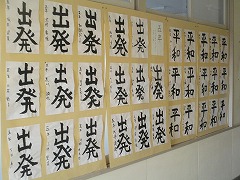 出発 出発 出発 出発 出発 平和 平和 平和 平和 平和
出発 出発 出発 出発 出発 出発 平和 平和 平和 平和 平和
出発 出発 出発 出発 出発 出発 平和 平和 平和 平和 平和